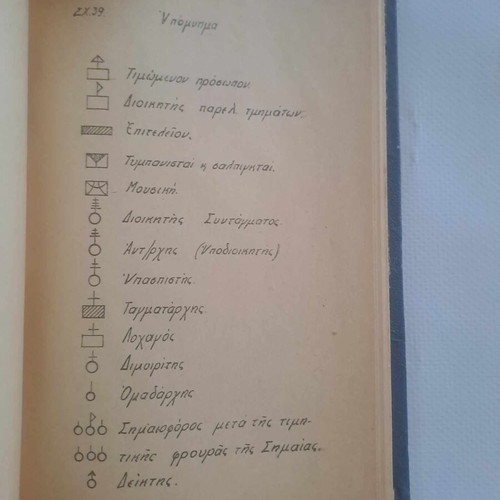 ΣΧ.39.
Ὑπόμνημα
Τιμώμενον πρόσωπον
Διοικητής παρελ. τμημάτων.
Ἐπιτελεῖον.
Τυμπανισταί κ σαλπιγκταί.
Μουσική.
Διοικητής Συντάγματος
Ἀντ/ρχης (Ὑποδιοικητής)
Ὑπασπιστής.
Ταγματάρχης.
Λοχαγός
Διμοιρίτης
Ὁμαδάρχης
Σημαιοφόρος μετά τῆς τιμη-
τικῆς φρουρᾶς τῆς Σημαίας.
Δείκτης.